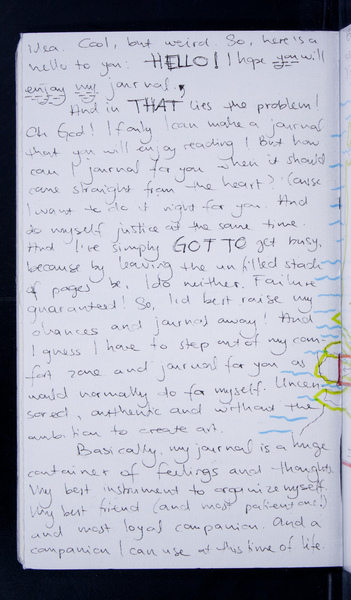 idea. Cool, but weird. So, here's a
hello to you: HELLO! I hope you will
enjoy my journal.
And in THAT lies the problem!
Oh God! If only I can make a journal
that you will enjoy reading! But how
can I journal for you when it should
come straight from the heart? 'Cause
I want to do it right for you. And
do myself justice at the same time.
And I've simply GOT TO get busy,
because by leaving the unfilled stack
of pages be, I do neither. Failure
guaranteed! So, I'd best raise my
chances and journal away! And
I guess I have to step out of my com-
fort zone and journal for you as I
would normally to for myself. Uncen-
sored, authentic and without the
ambition to create art.
Basically, my journal is a huge
container of feelings and thoughts.
My best instrument to organize myself.
My best friend (and most patient one!)
and most loyal companion. And a
companion I can use at this time of life.